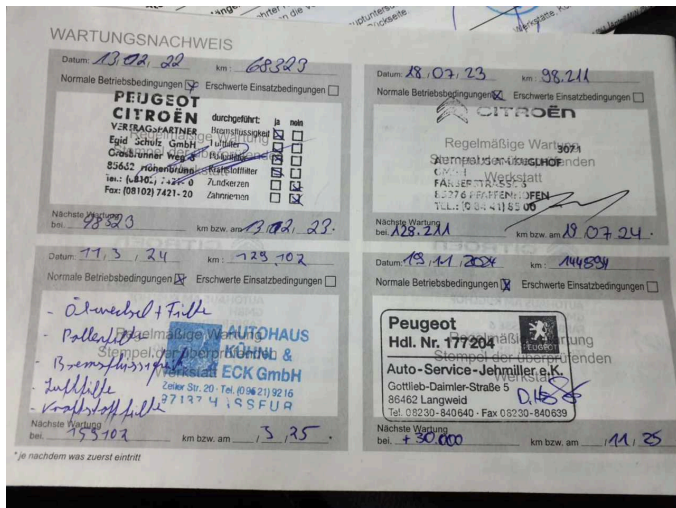 WARTUNGSNACHWEIS
Datum: 13,02, 22 km: 68323
Normale Betriebsbedingungen Erschwerte Einsatzbedingungen
PEUGEOT
CITROËN
VERTRAGSPARTNER
Egid Schulz GmbH
Grasbrunner Weg
85662 Hohenbrunn
Fax: (08102) 7421-20
durchgeführt: ja nein
Bremsflüssigkeit
Luftfilter
Pollenfilter
Kraftstofffilter
Zündkerzen
Zahnriemen
Nächste Wartung
bei. 98323 km bzw. am 13,02, 23.
Datum: 18,07,23 km: 98.211
Normale Betriebsbedingungen Erschwerte Einsatzbedingungen
CITROËN
Regelmäßige Wartung
Stempel der überprüfenden
Werkstatt
85276 PFAFFENHOFEN
Nächste Wartung
bei. 128.211 km bzw. am 18,07,24.
Datum: 11,3,24 km: 129 102
Normale Betriebsbedingungen Erschwerte Einsatzbedingungen
- Ölwechsel + Filter
- Pollenfilter
- Bremsflüssigkeit
- Luftfilter
- Kraftstofffilter
Regelmäßige Wartung
Stempel der überprüfenden
Werkstatt
AUTOHAUS
KÜHN &
ECK GmbH
Zeller Str. 20 · Tel. (09621) 9216
Nächste Wartung
bei. 159102 km bzw. am ,3,25.
Datum: 19,11,2024 km: 144894
Normale Betriebsbedingungen Erschwerte Einsatzbedingungen
Peugeot
Hdl. Nr. 177204
PEUGEOT
Regelmäßige Wartung
Stempel der überprüfenden
Werkstatt
Auto-Service-Jehmiller e.K.
Gottlieb-Daimler-Straße 5
86462 Langweid
Tel. 08230-840640 · Fax 08230-840639
Nächste Wartung
bei. +30.000 km bzw. am ,11,25
* je nachdem was zuerst eintritt